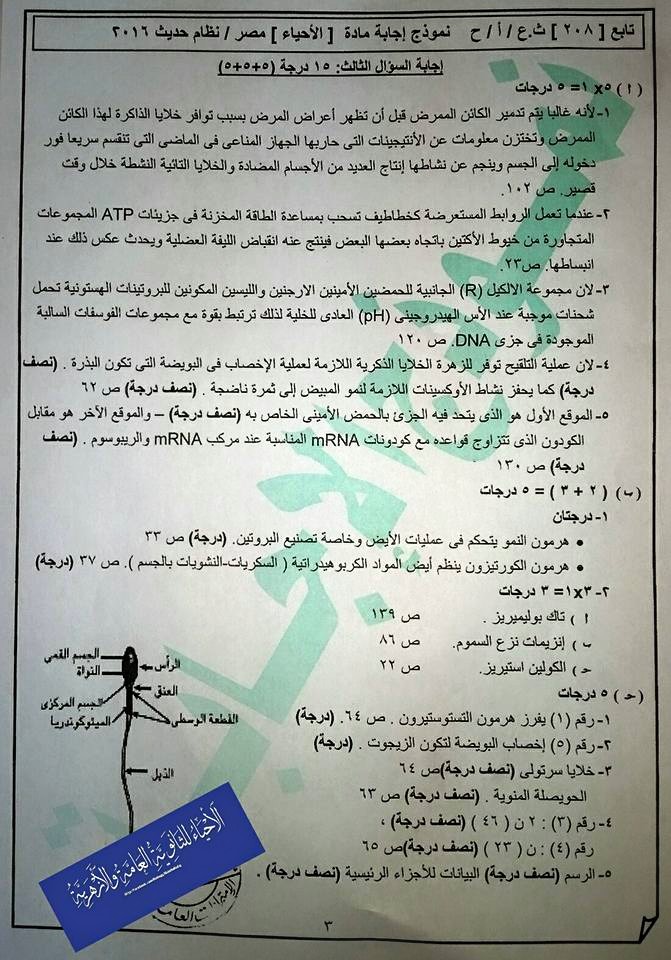 تابع [ ٢٠٨ ] ث.ع / أ / ح نموذج إجابة مادة [ الأحياء ] مصر / نظام حديث ٢٠١٦
إجابة السؤال الثالث: ١٥ درجة (٥+٥+٥)
( ا ) ٥x ١= ٥ درجات
١- لأنه غالبا يتم تدمير الكائن الممرض قبل أن تظهر أعراض المرض بسبب توافر خلايا الذاكرة لهذا الكائن
الممرض وتختزن معلومات عن الأنتيجينات التى حاربها الجهاز المناعى فى الماضى التى تنقسم سريعا فور
دخوله إلى الجسم وينجم عن نشاطها إنتاج العديد من الأجسام المضادة والخلايا التائية النشطة خلال وقت
قصير. ص ١٠٢.
٢- عندما تعمل الروابط المستعرضة كخطاطيف تسحب بمساعدة الطاقة المخزنة فى جزيئات ATP المجموعات
المتجاورة من خيوط الأكتين باتجاه بعضها البعض فينتج عنه انقباض الليفة العضلية ويحدث عكس ذلك عند
انبساطها. ص٢٣.
٣- لان مجموعة الالكيل (R) الجانبية للحمضين الأمينين الارجنين والليسين المكونين للبروتينات الهستونية تحمل
شحنات موجبة عند الأس الهيدروجينى (pH) العادى للخلية لذلك ترتبط بقوة مع مجموعات الفوسفات السالبة
الموجودة فى جزى DNA. ص ١٢٠
٤- لان عملية التلقيح توفر للزهرة الخلايا الذكرية اللازمة لعملية الإخصاب فى البويضة التى تكون البذرة . (نصف
درجة) كما يحفز نشاط الأوكسينات اللازمة لنمو المبيض إلى ثمرة ناضجة . (نصف درجة) ص ٦٢
٥- الموقع الأول هو الذى يتحد فيه الجزئ بالحمض الأمينى الخاص به (نصف درجة) – والموقع الآخر هو مقابل
الكودون الذى تتزاوج قواعده مع كودونات mRNA المناسبة عند مركب mRNA والريبوسوم . (نصف
درجة) ص ١٣٠
(ب) ( ٢ + ٣ ) = ٥ درجات
١- درجتان
• هرمون النمو يتحكم فى عمليات الأيض وخاصة تصنيع البروتين. (درجة) ص ٣٣
• هرمون الكورتيزون ينظم أيض المواد الكربوهيدراتية ( السكريات-النشويات بالجسم ). ص ٣٧ (درجة)
٢- ٣x١= ٣ درجات
ا ) تاك بوليميريز . ص ١٣٩
ب ) إنزيمات نزع السموم. ص ٨٦
حـ ) الكولين استيريز. ص ٢٢
(حـ) ٥ درجات
١- رقم (١) يفرز هرمون التستوستيرون . ص ٦٤. (درجة)
٢- رقم (٥) إخصاب البويضة لتكون الزيجوت . (درجة)
٣- خلايا سرتولى (نصف درجة)ص ٦٤
الحويصلة المنوية . (نصف درجة) ص ٦٣
٤- رقم (٣) : ٢ ن ( ٤٦ ) (نصف درجة) ،
رقم (٤) : ن ( ٢٣ ) (نصف درجة)ص ٦٥
٥- الرسم (نصف درجة) البيانات للأجزاء الرئيسية (نصف درجة) .
الجسم القمى
الرأس
النواة
العنق
الجسم المركزى
القطعة الوسطى
الميتوكوندريا
الذيل
الأحياء للثانوية العامة والأزهرية
٣